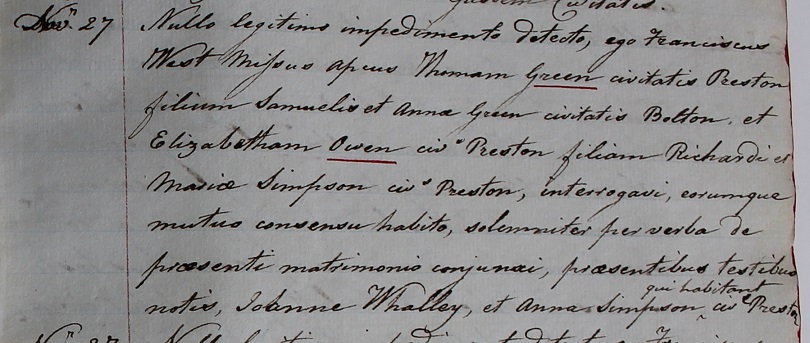 ejusdem Civitatis.
Novr 27 Nullo legitimo impedimento detecto, ego Franciscus
West Missus Apcus Thomam Green civitatis Preston
filium Samuelis et Annæ Green civitatis Bolton, et
Elizabetham Owen civs Preston filiam Richardi et
Mariæ Simpson civs Preston, interrogavi, eorumque
mutuo consensu habito, solemniter per verba de
præsenti matrimonio conjunxi, præsentibus testibus
qui habitant
notis, Joanne Whalley, et Anna Simpson civs Preston
Novr 27 Nullo legitimo impedimento detecto